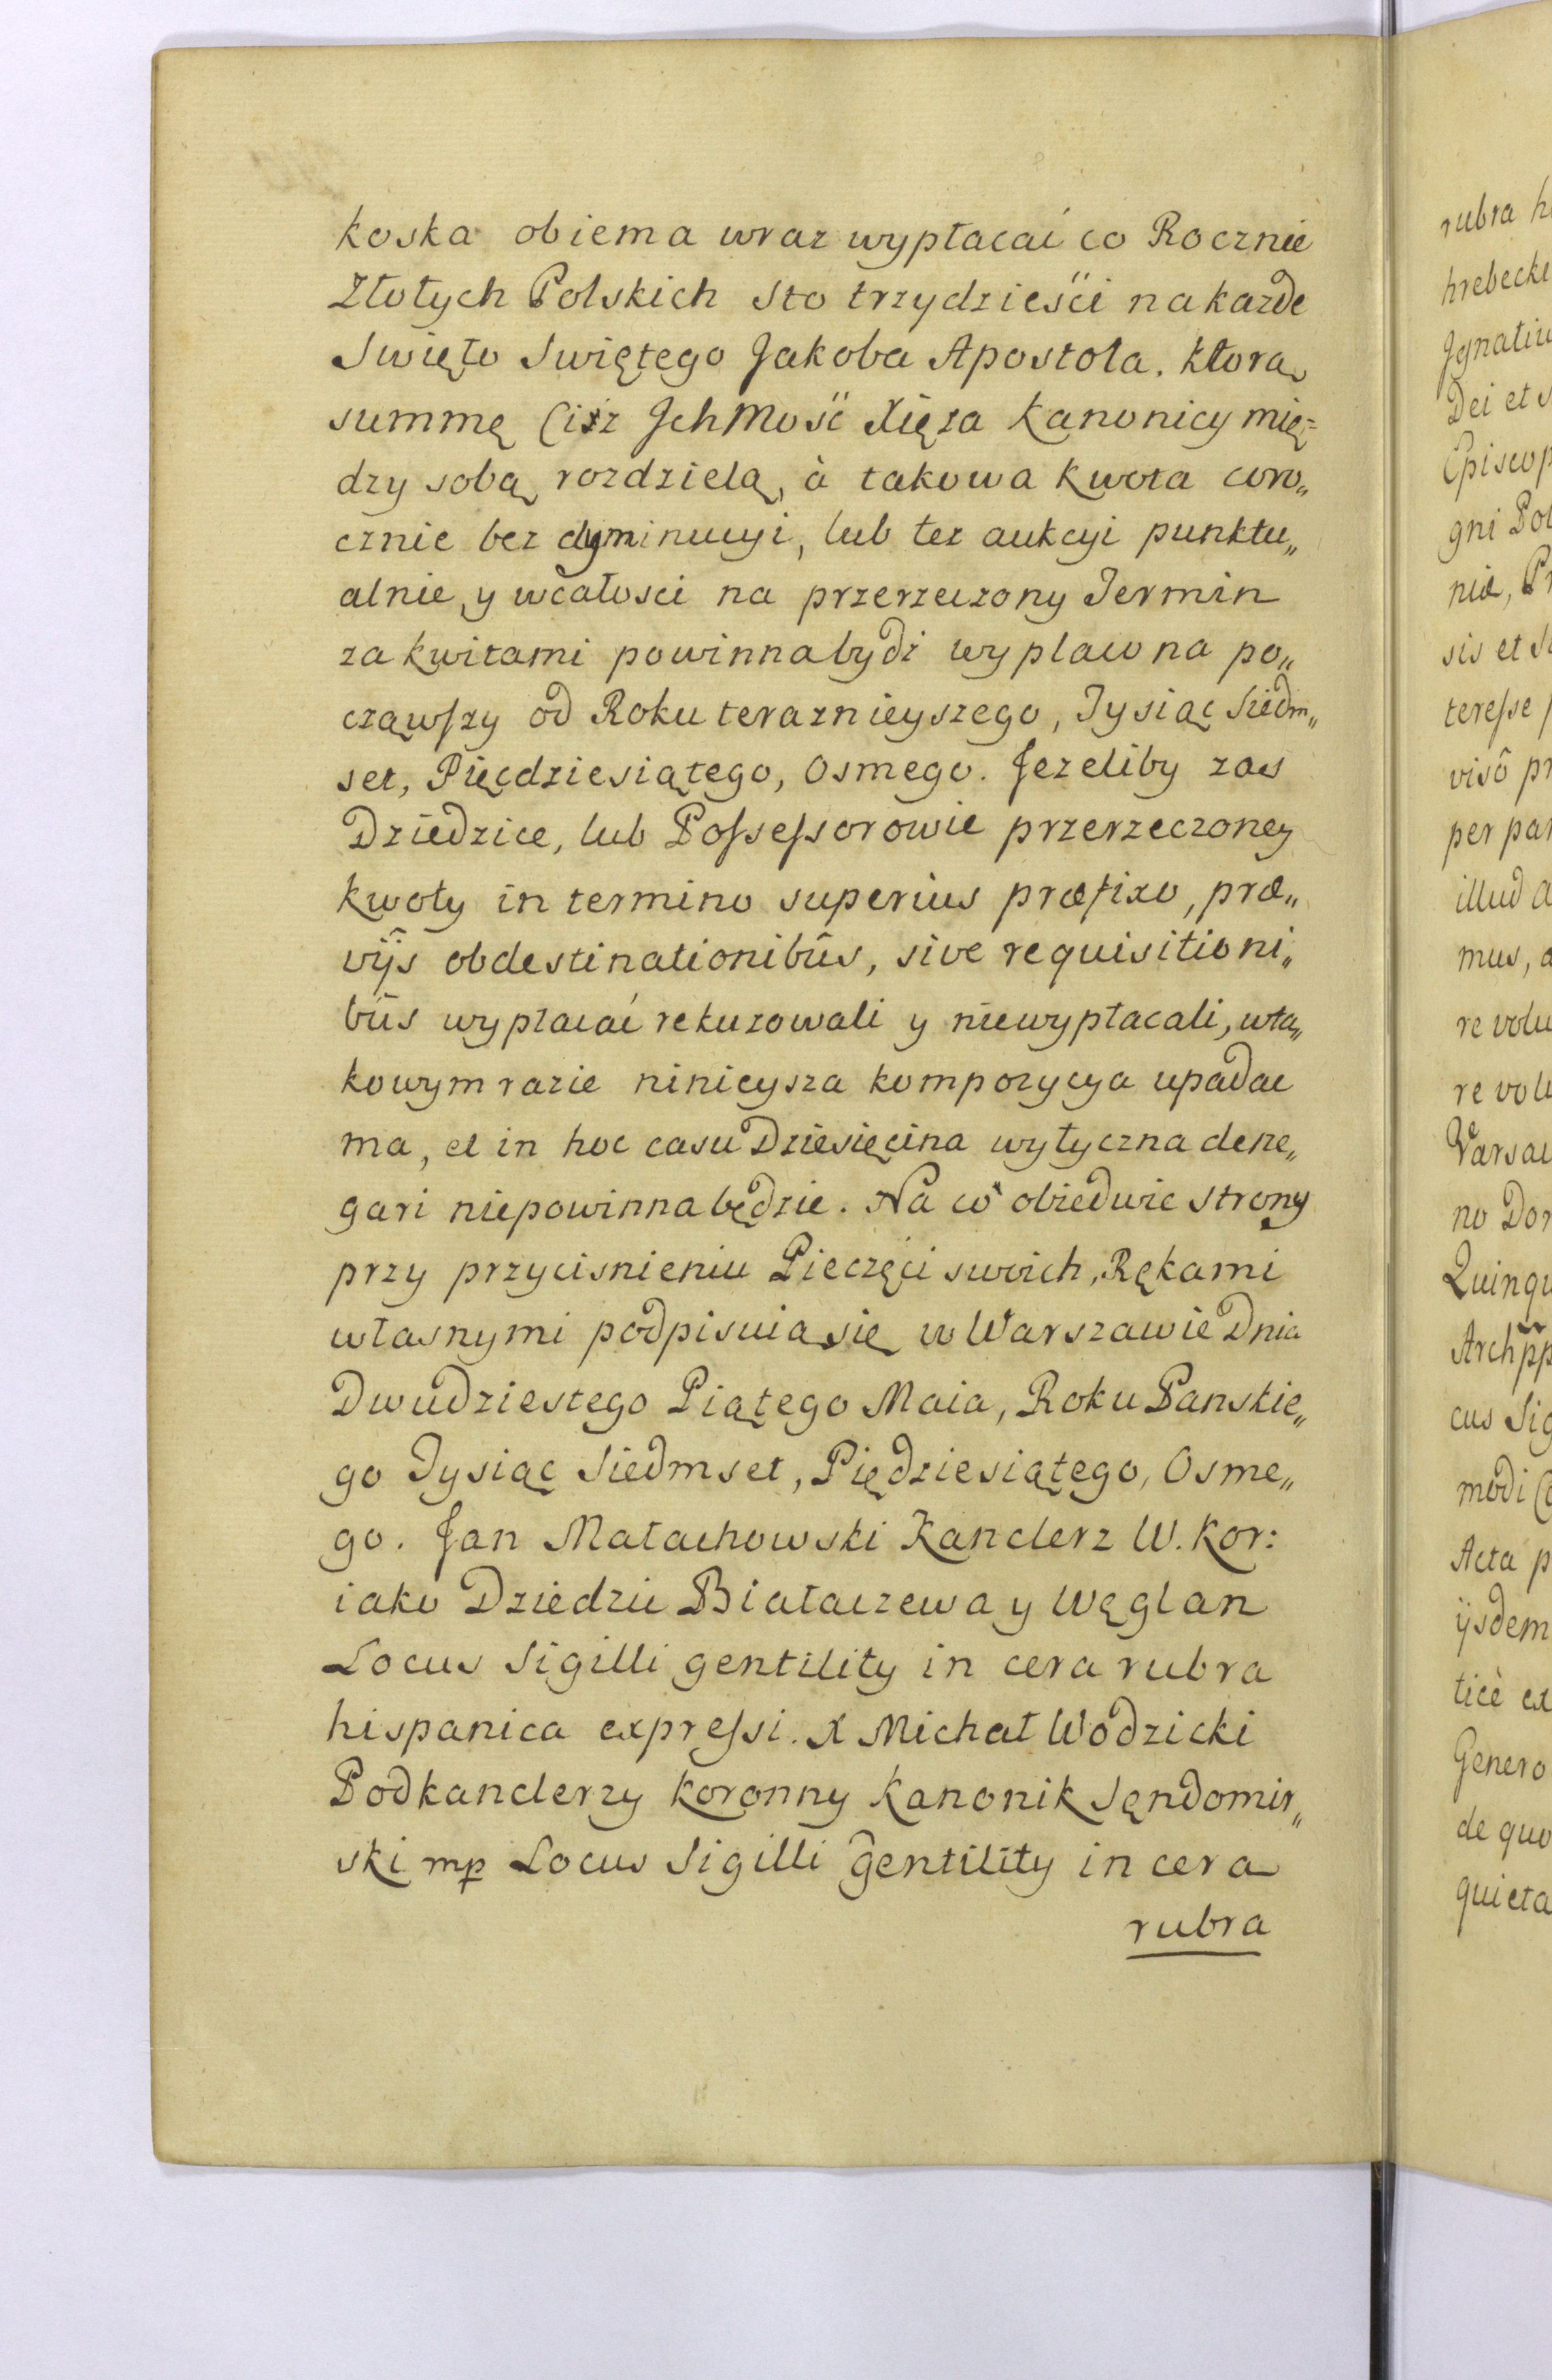 koska obiema wraz wypłacać co Rocznie
Złotych Polskich Sto trzydzieśći na każde
Swięto Swiętego Jakoba Apostoła. Ktorą
summę Ciż Ich Mość Xięża Kanonicy mię=
dzy sobą rozdzielą, à takowa kwota coro„
cznie bez dyminucyi, lub też aukcyi punktu„
alnie, y wcałosci na przerzeczony Termin
za kwitami powinna bydź wyplacona po„
cząwszy od Roku teraznieyszego, Tysiąc Siedm„
set, Pięcdziesiątego, Osmego. Jezeliby zas
Dziedzice, lub Possessorowie przerzeczoney
kwoty in termino superius præfixo, præ„
vijs obdestinationibûs, sive requisitioni„
bûs wyplacać rekuzowali y niewypłacali, wta„
kowym razie ninieysza kompozycya upadac
ma, et in hoc casu Dziesięcina wytyczna dene„
gari niepowinna będzie. Na co obiedwie strony
przy przycisnieniu Pieczęci swoich, Rękami
własnymi podpisuią się w Warszawie Dnia
Dwudziestego Piątego Maia, Roku Panskie„
go Tysiąc Siedmset, Piędziesiątego, Osme„
go. Jan Małachowski Kanclerz W. Kor:
iako Dziedzic Białaczewa y Węglan
Locus Sigilli gentility in cera rubra
hispanica expressi. X Michał Wodzicki
Podkanclerzy Koronny Kanonik Sendomir„
ski mp Locus Sigilli gentility in cera
rubra
rubra
hrebecki
Dei et
gni Pol
sis et
teresse
per par
illud
mus,
re volu
re vol
no Dor
Acta p
ijsdem
ticè ex
Genero
de quo
quieta